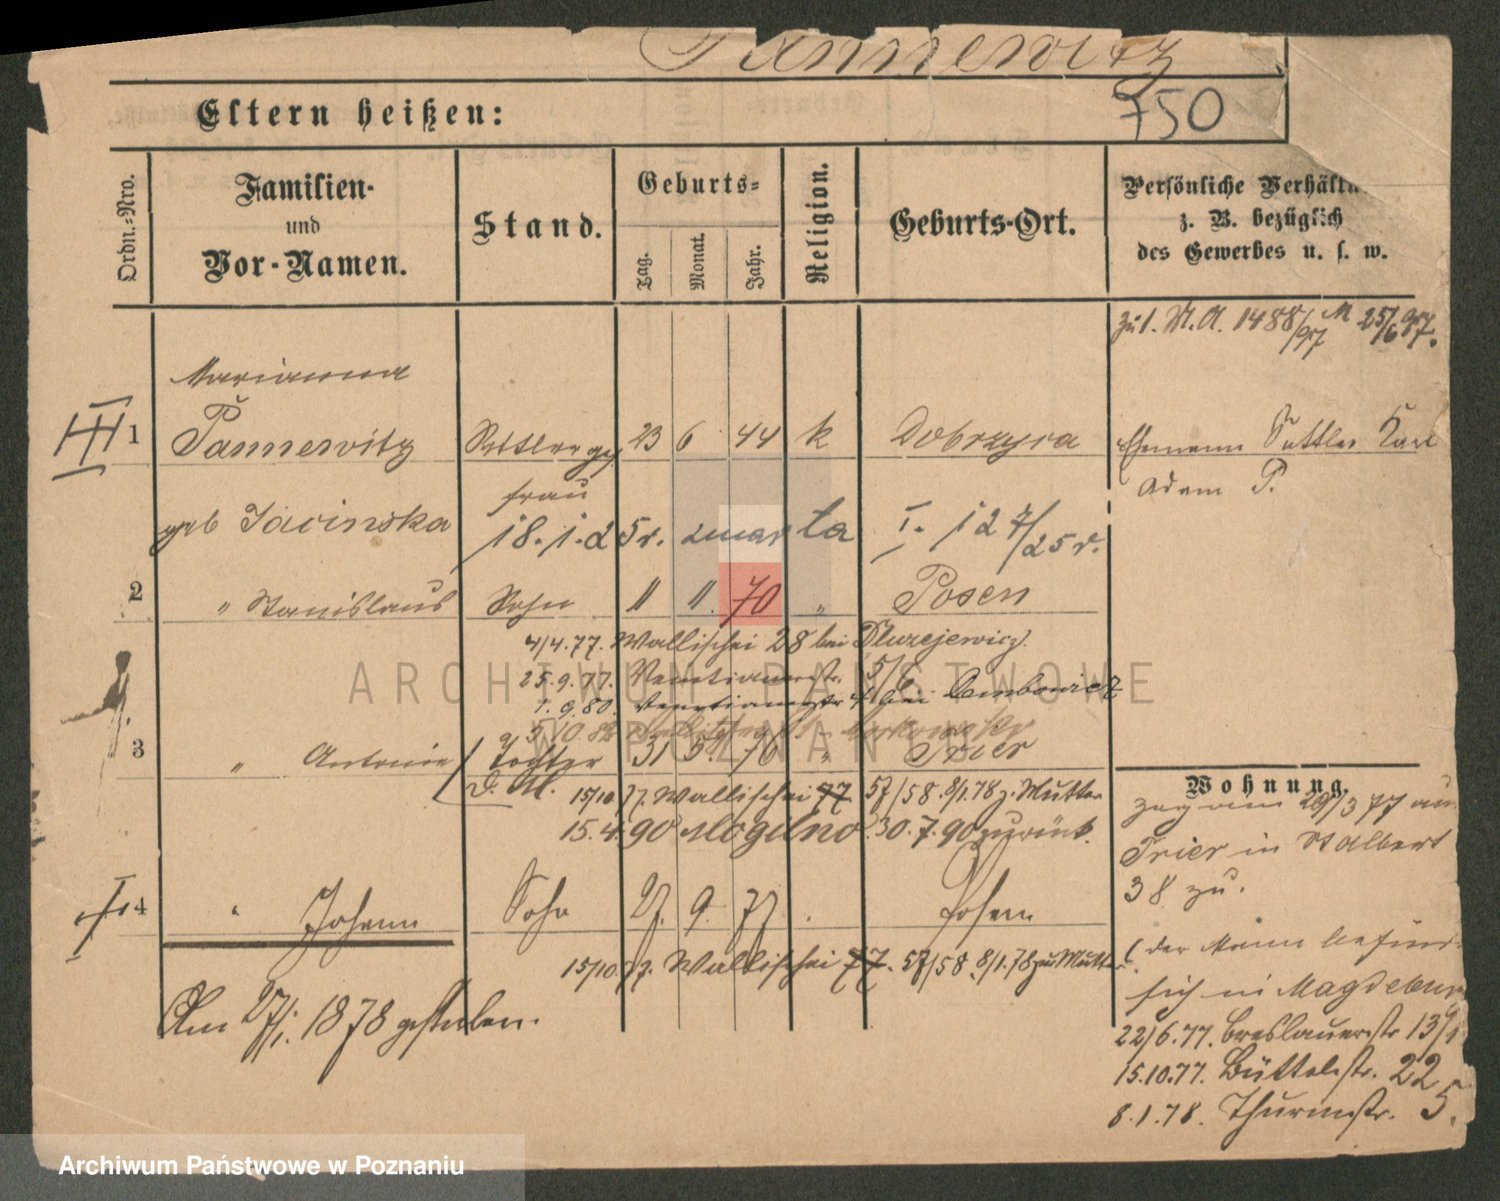 Pannewitz
750
Eltern heißen:
Ordn.-Nro.
Familien-
und
Vor-Namen.
Stand.
Geburts-
Tag.
Monat.
Jahr.
Religion.
Geburts-Ort.
Persönliche Verhältn
z. B. bezüglich
des Gewerbes u. s. w.
zu 1. M. A. 1488/97 M 25/6 97.
Marianna
III 1 Pannewitz 23 6 44 k Ehemann Sattler Karl
frau Adam P.
geb Jacinska 18. 1. 25 r. zmarła I. 127/25 r.
2 " Stanislaus Sohn " " 70 " Posen
4/4.77. Wallischei 28 bei
25.9.77. Venetianerstr. 5/6
1.9.80. Venetianerstr 4 bei
3 " Antonie Tochter 31 5 76 " Trier
15/10 77. Wallischei 77. 57/58. 8/1.78 z. Mutter
15.4.90 Mogilno 30.7.90 zurück.
Wohnung.
zog am 29/3 77 aus
Trier in St Albert
38 zu.
I 4 " Johann Sohn 27. 9. 77. Posen
15/10.77. Wallischei 77. 57/58. 8/1.78 zu Mutter
(der Mann befind
sich in Magdeburg
Am 27/1. 1878 gestorben.
22/6.77. Breslauerstr 13/
15.10.77. Büttelstr. 22
8.1.78. Thurmstr. 5.
ARCHIWUM PAŃSTWOWE
W POZNANIU
Archiwum Państwowe w Poznaniu